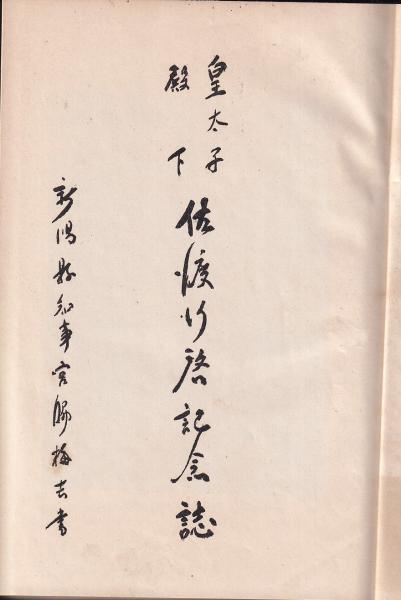 皇太子
殿下
佐渡行啓記念誌
新潟縣知事宮脇梅吉書